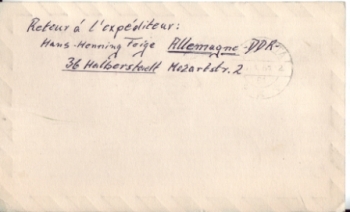 Retour á l'expéditeur:
Hans-Henning Feige Allemagne-DDR-
36 Halberstadt Mozartstr. 2